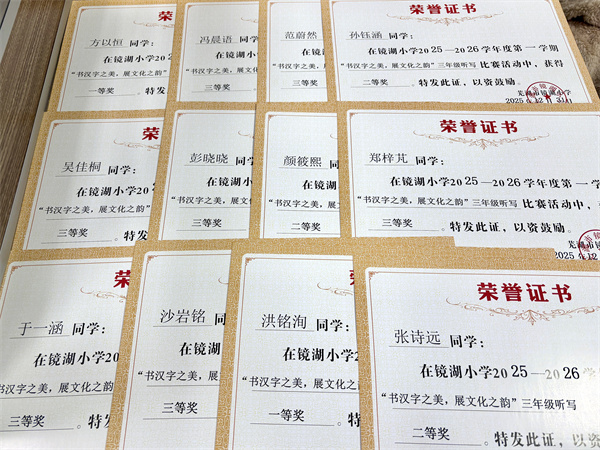 荣
方以恒 同学：
在镜湖小学2025
“书汉字之美，展文化之韵”
一等奖 。特发
冯晨语 同学：
在镜湖小学
“书汉字之美，展文
三等奖
范蔚然 同学
在镜湖小
“书汉字之美，展
三等奖
荣誉证书
孙钰涵 同学：
在镜湖小学2025—2026学年度第一学期
“书汉字之美，展文化之韵”三年级听写 比赛活动中，获得
二等奖 。特发此证，以资鼓励。
芜湖市镜湖小学
2025年12月31日
荣
吴佳桐 同学：
在镜湖小学2
“书汉字之美，展文化之
三等奖 。特发
彭晓晓 同学：
在镜湖小
“书汉字之美，展
三等奖
颜筱熙 同学：
在镜湖小学
“书汉字之美，展文
二等奖
荣誉证书
郑梓芃 同学：
在镜湖小学2025—2026学年度第一学
“书汉字之美，展文化之韵”三年级听写 比赛活动中，
三等奖 。特发此证，以资鼓励。
芜湖市镜
2025年12
荣
于一涵 同学：
在镜湖小学20
“书汉字之美，展文化之
三等奖 。特发
沙岩铭 同学
在镜湖小
“书汉字之美，展
三等奖
洪铭洵 同学：
在镜湖小学
“书汉字之美，展文
一等奖
荣誉证书
张诗远 同学：
在镜湖小学2025—2026学
“书汉字之美，展文化之韵”三年级听写
二等奖 。特发此证，以资